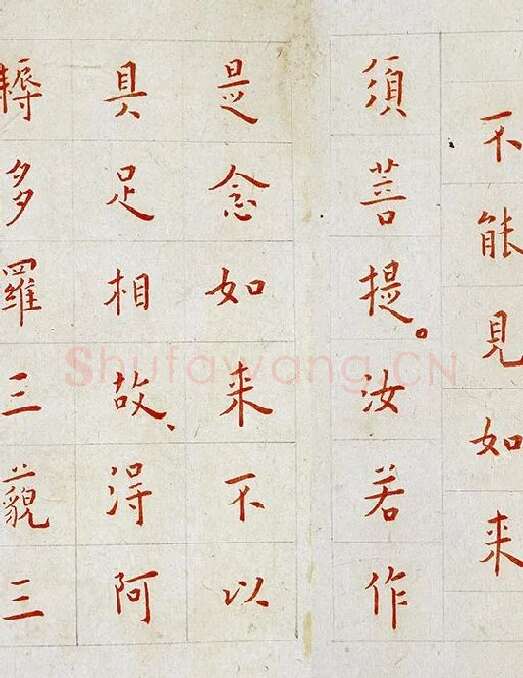 不能見如来
須菩提。汝若作
是念如来不以
具足相故、得阿
耨多羅三藐三
Shufawang.CN